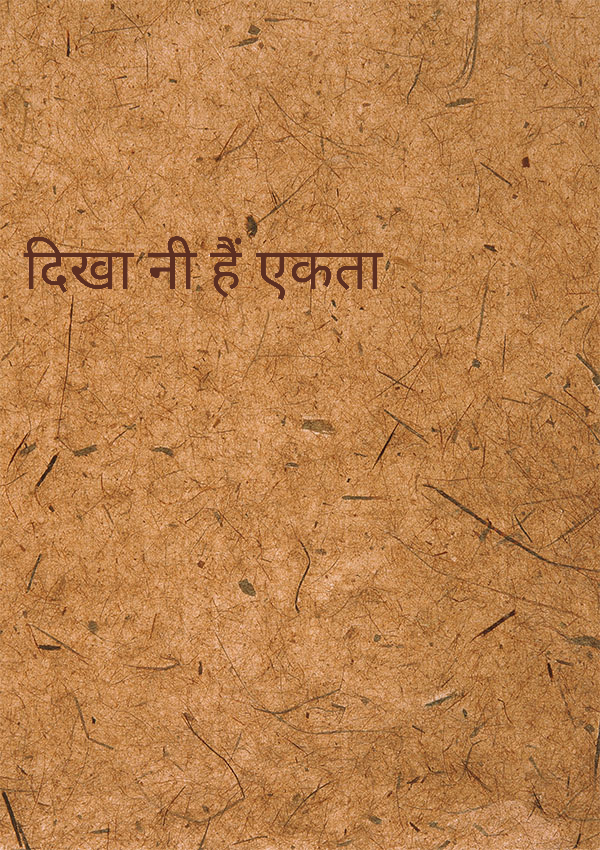 दिखा नी हैं एकता